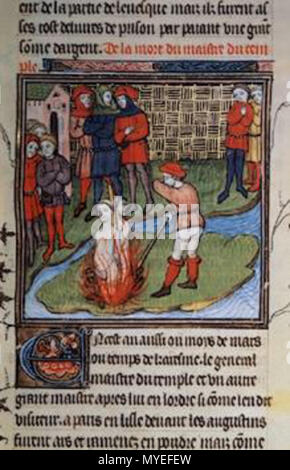 ent de la partie de levesque mais ilz furent as
ses tost deliures de prison par paiant vne grãt
sõme dargent. De la mort du maistre du tem
ple
En cest an aussi ou mois de mars
ou temps de karesme. le general
maistre du temple et vn autre
grant maistre apres lui en lordre si cõme len dit
visiteur. a paris en lisle deuant les augustins
furent ars et ramenez en poudre mais cõme
alamy
Image ID: MYEFEW
www.alamy.com